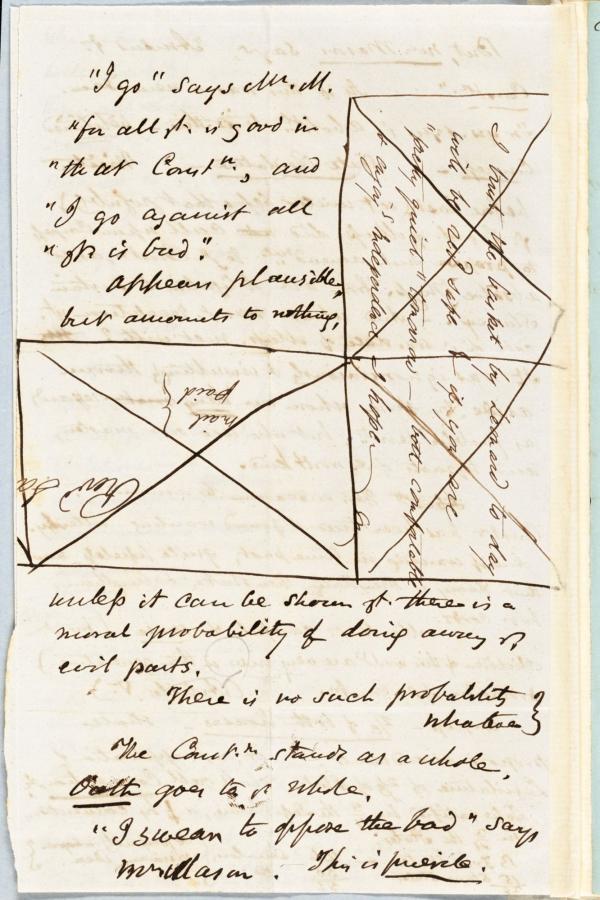 "I go" says Mr. M.
"for all yt. is good in
"that Constn., and
"I go against all
"yt. is bad."
appears plausible,
but amounts to nothing,
I trust the basket by Leonard to day
will be recd safe & if you are
"pretty quiet" tomorrow — both comfortable
& enjoy'g independence I hope —
mail
paid }
Revd Sa
unless it can be shown yt. there is a
moral probability of doing away ye
evil parts.
There is no such probability
whatever }
The Constn. stands as a whole.
Oath goes to ye whole.
"I swear to oppose the bad" says
Mr. Mason. This is puerile.